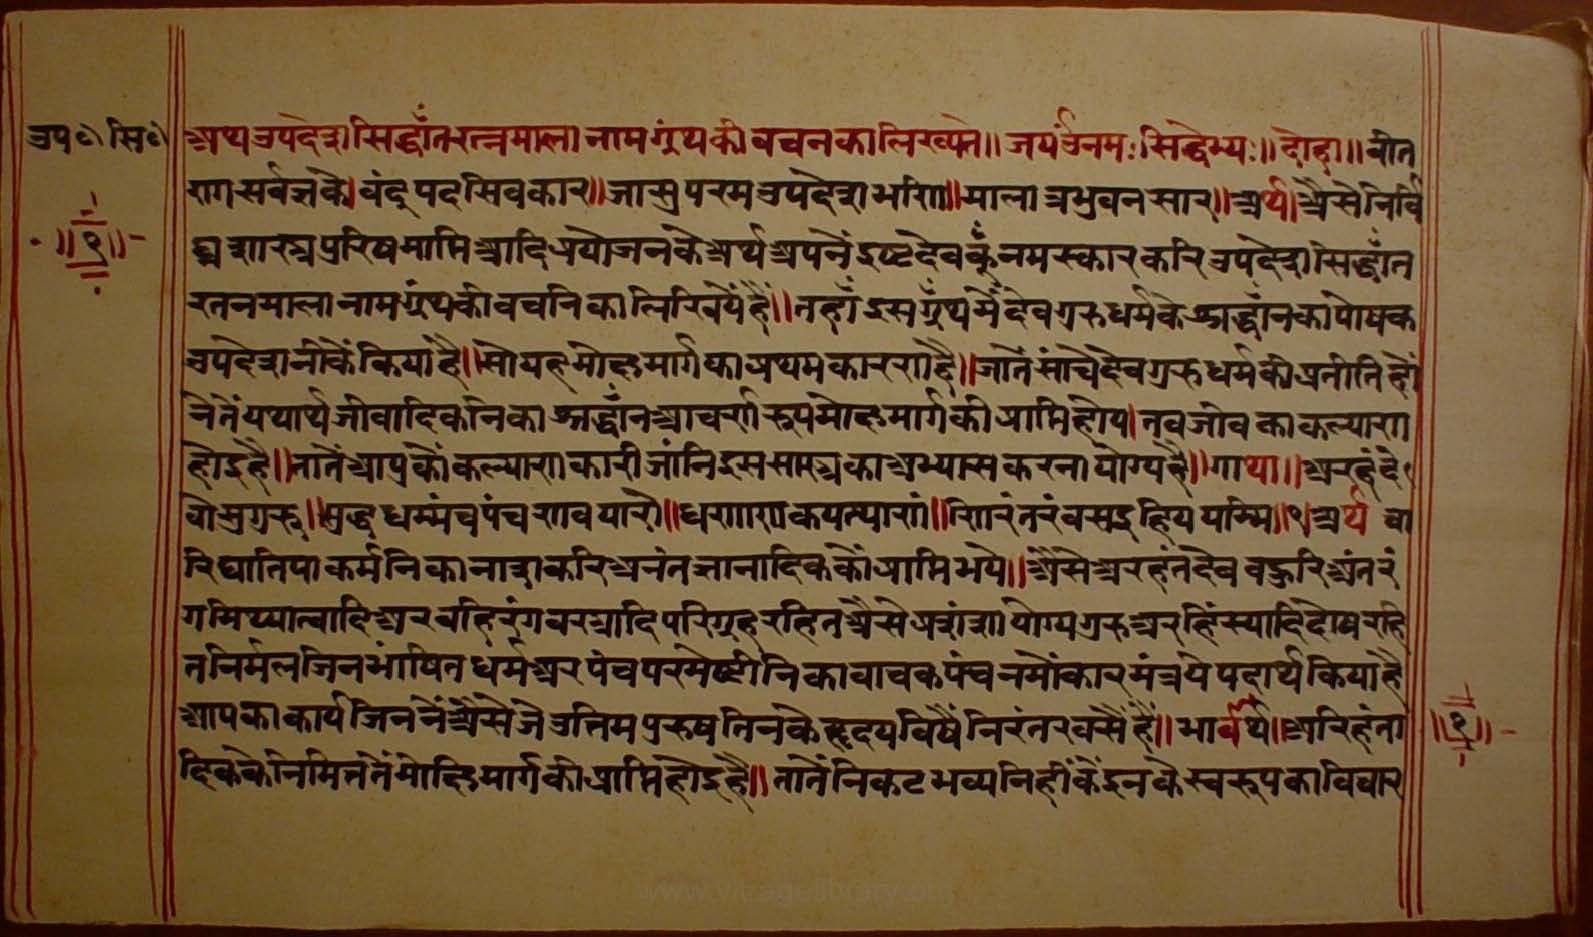 उप० सि०
अथ उपदेश सिद्धाँत रत्नमाला नाम ग्रंथ की वचनका लिख्यते॥ जयउँनमः सिद्धेभ्यः॥ दोहा॥ वीत
राग सर्वज्ञकै। वंदू पद सिवकार॥ जासु परम उपदेश मणि॥ माला त्रभुवन सार॥ अर्थ॥ अैसे निर्वि
घ्न शास्त्र
आदि प्रयोजन के अर्थ अपनें इष्टदेव कूँ नमस्कार करि उपदेश सिद्धाँत
॥१॥
रतनमाला नाम ग्रंथ की वचनिका लिरिवयें हैं॥ तहाँ इस ग्रँथ मैं देव गुरु धर्म के श्रद्धाँन का पोषक
उपदेश नीकें किया है॥ सो यह मोक्ष मार्ग का प्रथम कारण है॥ जातें सांचे देव गुरु धर्म की प्रतीति हों
नेतें यथार्थ जीवादिकनिका श्रद्धाँन आचर्ण रूप मोक्ष मार्ग की प्राप्ति होय। तव जीव का कल्याण
होइ है॥ तातें आपकौं कल्याणकारी जांनि इस सास्त्र का अभ्यास करना योग्य है॥ गाथा॥ अरहंदे
वो सुगुरु॥ सुद्ध धम्मं च पंच णवयारो॥ धण्णाण कयत्थाणं॥ णिरंतरं वसइ हियय्यम्मि॥१॥ अर्थ चा
रि घातिया कर्मनिका नाश करि अनंत ज्ञानादिककौं प्राप्ति भये॥ अैसे अरहंत देव वहुरि अंतरं
ग मिथ्यात्वादि अर वहिरंग वस्त्रादि परिग्रह रहित अैसे प्रशंशा योग्य गुरु अर हिंस्यादि दोष रहि
त निर्मल जिन भांषित धर्म अर पंच परमेष्टीनि का वाचक पंच नमोंकार मंत्र ये पदार्थ किया है
आपका कार्य जिननें अैसे जे उत्तिम पुरुष तिनके हृदय विषैं निरंतर वसैं हैं॥ भावर्थ॥ अरिहंता
॥१॥
दिकके निमित्ततें मोक्षि मार्ग की प्राप्ति होइ है॥ तातें निकट भव्यनिहीं कें इनके स्वरूप का विचार
www.vitragelibrary.org